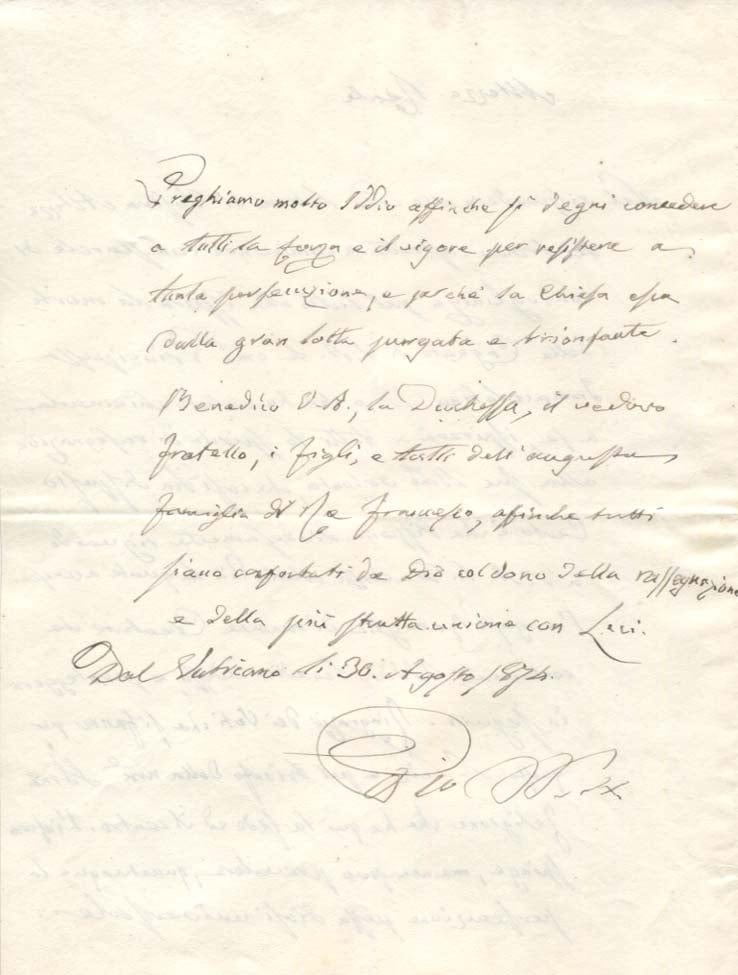 Preghiamo molto Iddio affinche si degni concedere
a tutti la forza e il vigore per resistere a
tanta persecuzione, e perchè la Chiesa esca
dalla gran lotta purgata e trionfante.
Benedico V. A., la Duchessa, il vedovo
fratello, i figli, e tutti dell'augusta
famiglia di Re Francesco, affinche tutti
siano confortati da Dio col dono della rassegnazione
e della più stretta unione con Lui.
Dal Vaticano li 30. Agosto 1874.
Pio PP. IX